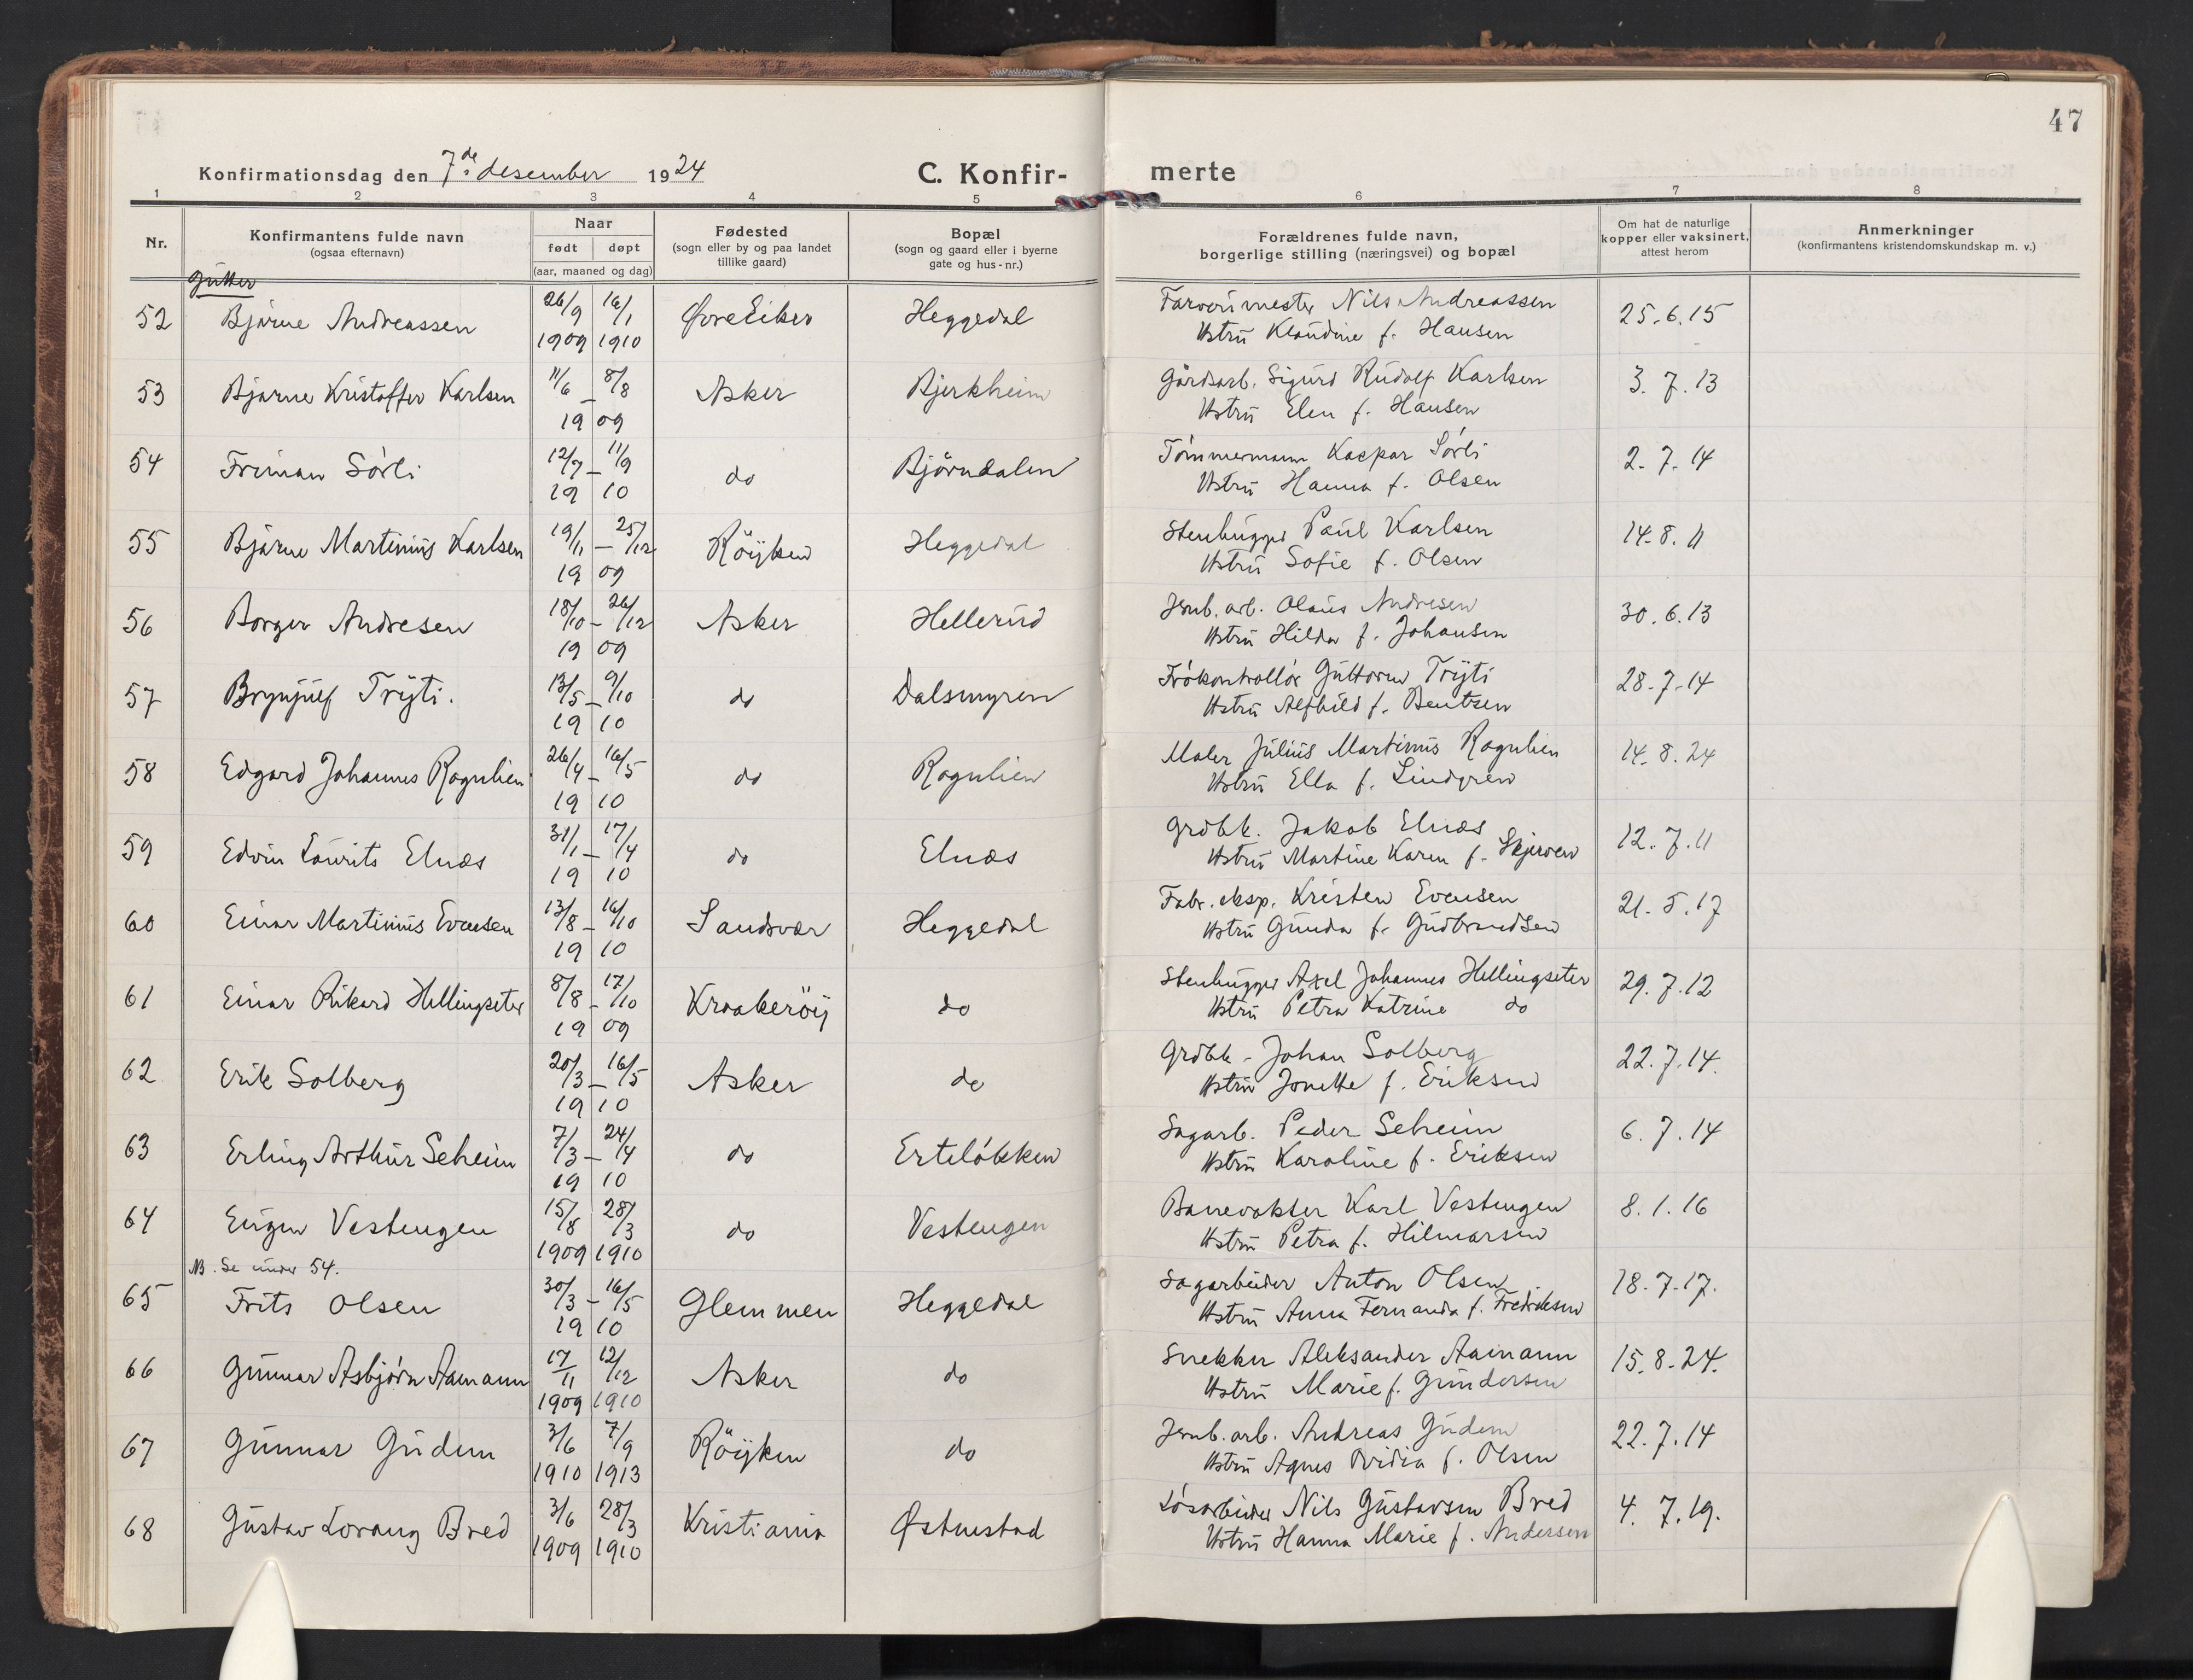 47
Konfirmationsdag den 7de desember 1924
C. Konfir-
merte
1 2 3 4 5 6 7 8
Nr.
Konfirmantens fulde navn
(ogsaa efternavn)
Naar
født døpt
(aar, maaned og dag)
Fødested
(sogn eller by og paa landet
tillike gaard)
Bopæl
(sogn og gaard eller i byerne
gate og hus-nr.)
Forældrenes fulde navn,
borgerlige stilling (næringsvei) og bopæl
Om hat de naturlige
kopper eller vaksinert,
attest herom
Anmerkninger
(konfirmantens kristendomskundskap m. v.)
Gutter
52 Bjarne Andreassen 26/9 16/1 Øvre Eiker Heggedal Farverimester Nils Andreassen 25.6.15
1909 1910 Hstru Klaudine f. Hansen
53 Bjarne Kristoffer Karlsen 11/6 – 8/8 Asker Bjerkheim Gårdsarb. Sigurd Rudolf Karlsen 3. 7. 13
19 09 Hstru Elen f. Hansen
54 Friman Sörli 12/7 – 11/9 do Björndalen Tömmermann Kaspar Sörli 2. 7. 14
19 10 Hstru Hanna f. Olsen
55 Bjarne Martinius Karlsen 19/11 – 25/12 Röijken Heggedal Stenhugger Paul Karlsen 14.8.11
19 09 Hstru Sofie f. Olsen
56 Borger Andresen 18/10 – 26/12 Asker Hellerud Jernb. arb. Olaus Andresen 30.6.13
19 09 Hstru Hilda f. Johansen
57 Brynjulf Tryti. 13/5 – 9/10 do Dalsmyren Frökontrollör Guttorm Tryti 28.7.14
19 10 Hstru Alfhild f. Bentsen
58 Edgard Johannes Rognlien 26/4 – 16/5 do Rognlien Maler Julius Martinius Rognlien 14.8.24
19 10 Hstru Ella f. Lindgren
59 Edvin Laurits Elnæs 31/1 – 17/4 do Elnæs Grdbk. Jakob Elnæs 12.7.11
19 10 Hstru Martine Karen f. Skjerven
60 Einar Martinius Evensen 13/8 – 16/10 Sandsvær Heggedal Fabr. eksp. Kristen Evensen 21.5.17
19 10 Hstru Gunda f. Gudbrandsen
61 Einar Rikard Hellingseter 8/8 – 17/10 Kraakeröij do Stenhugger Axel Johannes Hellingseter 29.7.12
19 09 Hstru Petra Katrine do
62 Erik Solberg 20/3 – 16/5 Asker do Grdbk – Johan Solberg 22.7.14.
19 10 Hstru Jonette f. Eriksen
63 Erling Arthur Seheim 7/3 – 24/4 do Ertelökken Sagarb. Peder Seheim 6.7.14
19 10 Hstru Karoline f. Eriksen
64 Eugen Vestengen 15/8 28/3 do Vestengen Banevokter Karl Vestengen 8.1.16
1909 1910 Hstru Petra f. Hilmarsen
NB. Se under 54.
65 Frits Olsen 30/3 – 16/5 Glemmen Heggedal Sagarbeider Anton Olsen 18.7.17.
19 10 Hstru Anna Fernanda f. Fredriksen
66 Gunnar Asbjörn Aamann 17/11 12/12 Asker do Snekker Aleksander Aamann 15.8.24.
1909 1910 Hstru Marie f. Gundersen
67 Gunnar Gudem 3/6 7/9 Röijken do Jernb. arb. Andreas Gudem 22.7.14
1910 1913 Hstru Agnes Ovidia f. Olsen
68 Gustav Lorang Bred 3/6 28/3 Kristiania Østnestad Lösarbeider Nils Gustavsen Bred 4. 7.19.
1909 1910 Hstru Hanna Marie f. Andersen